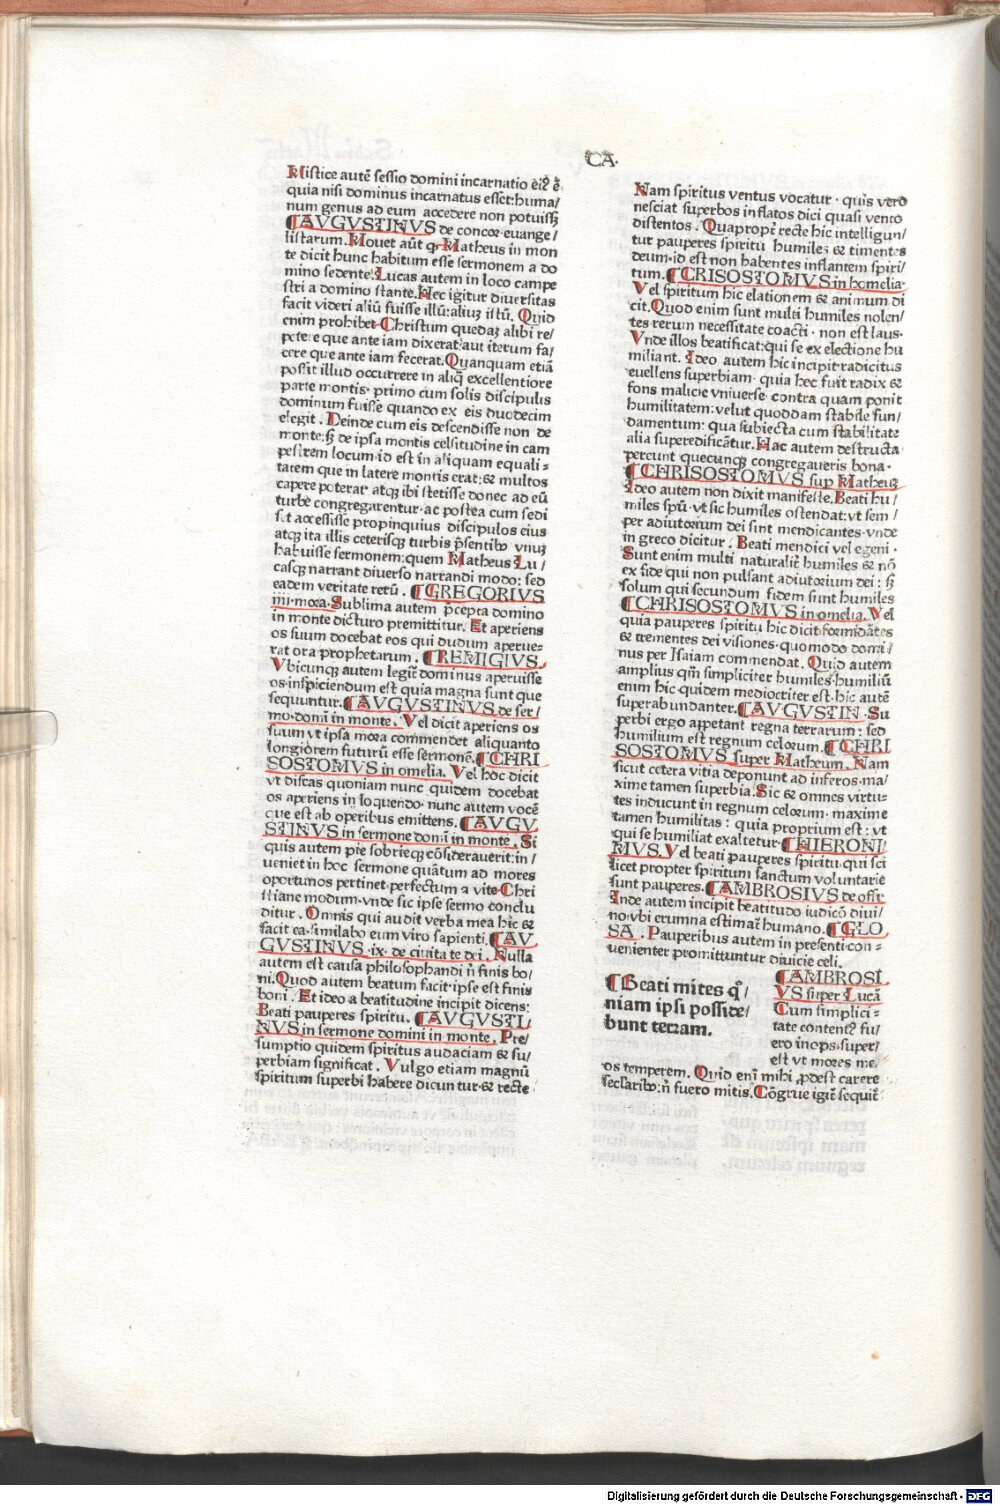 CA.
Mistice autē sessio domini incarnatio eiꝰ ē
quia nisi dominus incarnatus esset:huma/
num genus ad eum accedere non potuiss̄
¶AVGVSTINVS de concor·euange/
listarum.Mouet aūt q· Matheus in mon
te dicit hunc habitum esse sermonem a do
mino sedente:Lucas autem in loco campe
stri a domino stante.Hec igitur diuersitas
facit videri aliū fuisse illū:aliuꝫ istū. Quid
enim prohibet Christum quedaꝫ alibi re/
petere que ante iam dixerat:aut iterum fa/
cere que ante iam fecerat.Quanquam etiā
possit illud occurrere in aliq̄ excellentiore
parte montis· primo cum solis discipulis
dominum fuisse quando ex eis duodecim
elegit . Deinde cum eis descendisse non de
monte:sꝫ de ipsa montis celsitudine in cam
pestrem locum·id est in aliquam equali=
tatem que in latere montis erat:& multos
capere poterat· atqꝫ ibi stetisse donec ad eū
turbe congregarentur·ac postea cum sedi
sset accessisse propinquius discipulos eius
atqꝫ ita illis ceterisqꝫ turbis p̄sentibꝰ vnuꝫ
habuisse sermonem:quem Matheus Lu/
casqꝫ narrant diuerso narrandi modo: sed
eadem veritate rerū . ¶GREGORIVS
iiii·mora.Sublima autem p̄cepta domino
in monte dicturo premittitur. Et aperiens
os suum docebat eos qui dudum aperue=
rat ora prophetarum . ¶REMIGIVS.
Vbicunqꝫ autem legit̄ dominus aperuisse
os·inspiciendum est quia magna sunt que
sequuntur.¶AVGVSTINVS de ser/
mo·domī in monte . Vel dicit aperiens os
suum vt ipsa mora commendet aliquanto
longiorem futurū esse sermonē.¶CHRI
SOSTOMVS in omelia. Vel hoc dicit
vt discas quoniam nunc quidem docebat
os aperiens in loquendo· nunc autem vocē
que est ab operibus emittens.¶AVGV
STINVS in sermone domī in monte . Si
quis autem pie sobrieqꝫ cōsiderauerit:in/
ueniet in hoc sermone quātum ad mores
oportunos pertinet·perfectum a vite Chri
stiane modum·vnde sic ipse sermo conclu
ditur . Omnis qui audit verba mea hic &
facit ea·similabo eum viro sapienti.¶AV
GVSTINVS ·ix· de ciuitate dei . Nulla
autem est causa philosophandi n̄ finis bo/
ni.Quod autem beatum facit·ipse est finis
boni . Et ideo a beatitudine incipit dicens:
Beati pauperes spiritu. ¶AVGVSTI/
NVS in sermone domini in monte . Pre/
sumptio quidem spiritus audaciam & su/
perbiam significat . Vulgo etiam magnū
spiritum superbi habere dicuntur·& recte
Nam spiritus ventus vocatur · quis vero
nesciat superbos inflatos dici quasi vento
distentos . Quapropt̄ recte hic intelligun/
tur pauperes spiritu humiles & timentes
deum·id est non habentes inflantem spiri/
tum.¶CRISOSTOMVS in homelia·
Vel spiritum hic elationem & animum di
cit.Quod enim sunt multi humiles nolen/
tes·rerum necessitate coacti · non est laus·
Vnde illos beatificat:qui se ex electione hu
miliant. Ideo autem hic incipit·radicitus
euellens superbiam· quia hec fuit radix &
fons malicie vniuerse· contra quam ponit
humilitatem:velut quoddam stabile fun/
damentum: qua subiecta cum stabilitate
alia superedificātur. Hac autem destructa
pereunt quecunqꝫ congregaueris bona·
¶CHRISOSTOMVS sup Matheuꝫ
Ideo autem non dixit manifeste.Beati hu/
miles spū· vt sic humiles ostendat:vt sem/
per adiutorium dei sint mendicantes·vnde
in greco dicitur . Beati mendici vel egeni·
Sunt enim multi naturalit̄ humiles & nō
ex fide qui non pulsant adiutorium dei : sꝫ
solum qui secundum fidem sunt humiles
¶CHRISOSTOMVS in omelia. Vel
quia pauperes spiritu hic dicit formidātes
& trementes dei visiones·quomodo domi/
nus per Isaiam commendat. Quid autem
amplius qm̄ simpliciter humiles·humiliū
enim hic·quidem mediocriter est·hic autē
superabundanter.¶AVGVSTIN · Su
perbi ergo appetant regna terrarum: sed
humilium est regnum celorum.¶CHRI
SOSTOMVS super Matheum. Nam
sicut cetera vitia deponunt ad inferos·ma/
xime tamen superbia.Sic & omnes virtu=
tes inducunt in regnum celorum· maxime
tamen humilitas: quia proprium est : vt
qui se humiliat exaltetur.¶HIERONI/
MVS.Vel beati pauperes spiritu·qui sci
licet propter spiritum sanctum voluntarie
sunt pauperes.¶AMBROSIVS de offi·
Inde autem incipit beatitudo iudicō diui/
no·vbi erumna estimat̄ humano. ¶GLO
SA . Pauperibus autem in presenti con=
uenienter promittuntur diuicie celi.
¶Beati mites qm̄/
niam ipsi posside/
bunt terram.
¶AMBROSI
VS super Lucā
Cum simplici=
tate contentꝰ fu/
ero inops·super/
est vt mores me/
os temperem. Quid enī mihi ꝓdest carere
seclaribꝰ:n̄ fuero mitis.Cōgrue igit̄ sequit̄
Digitalisierung gefördert durch die Deutsche Forschungsgemeinschaft - DFG